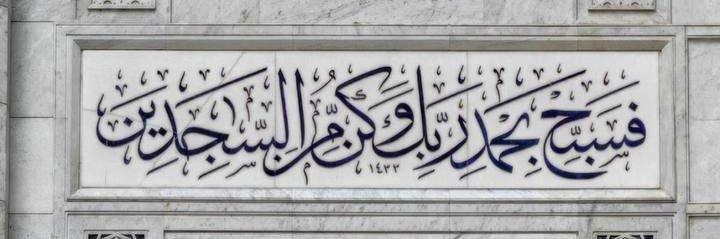 فَسَبِّحْ بِحَمْدِ رَبِّكَ وَكُن مِّنَ السَّاجِدِينَ
١٤٣٣